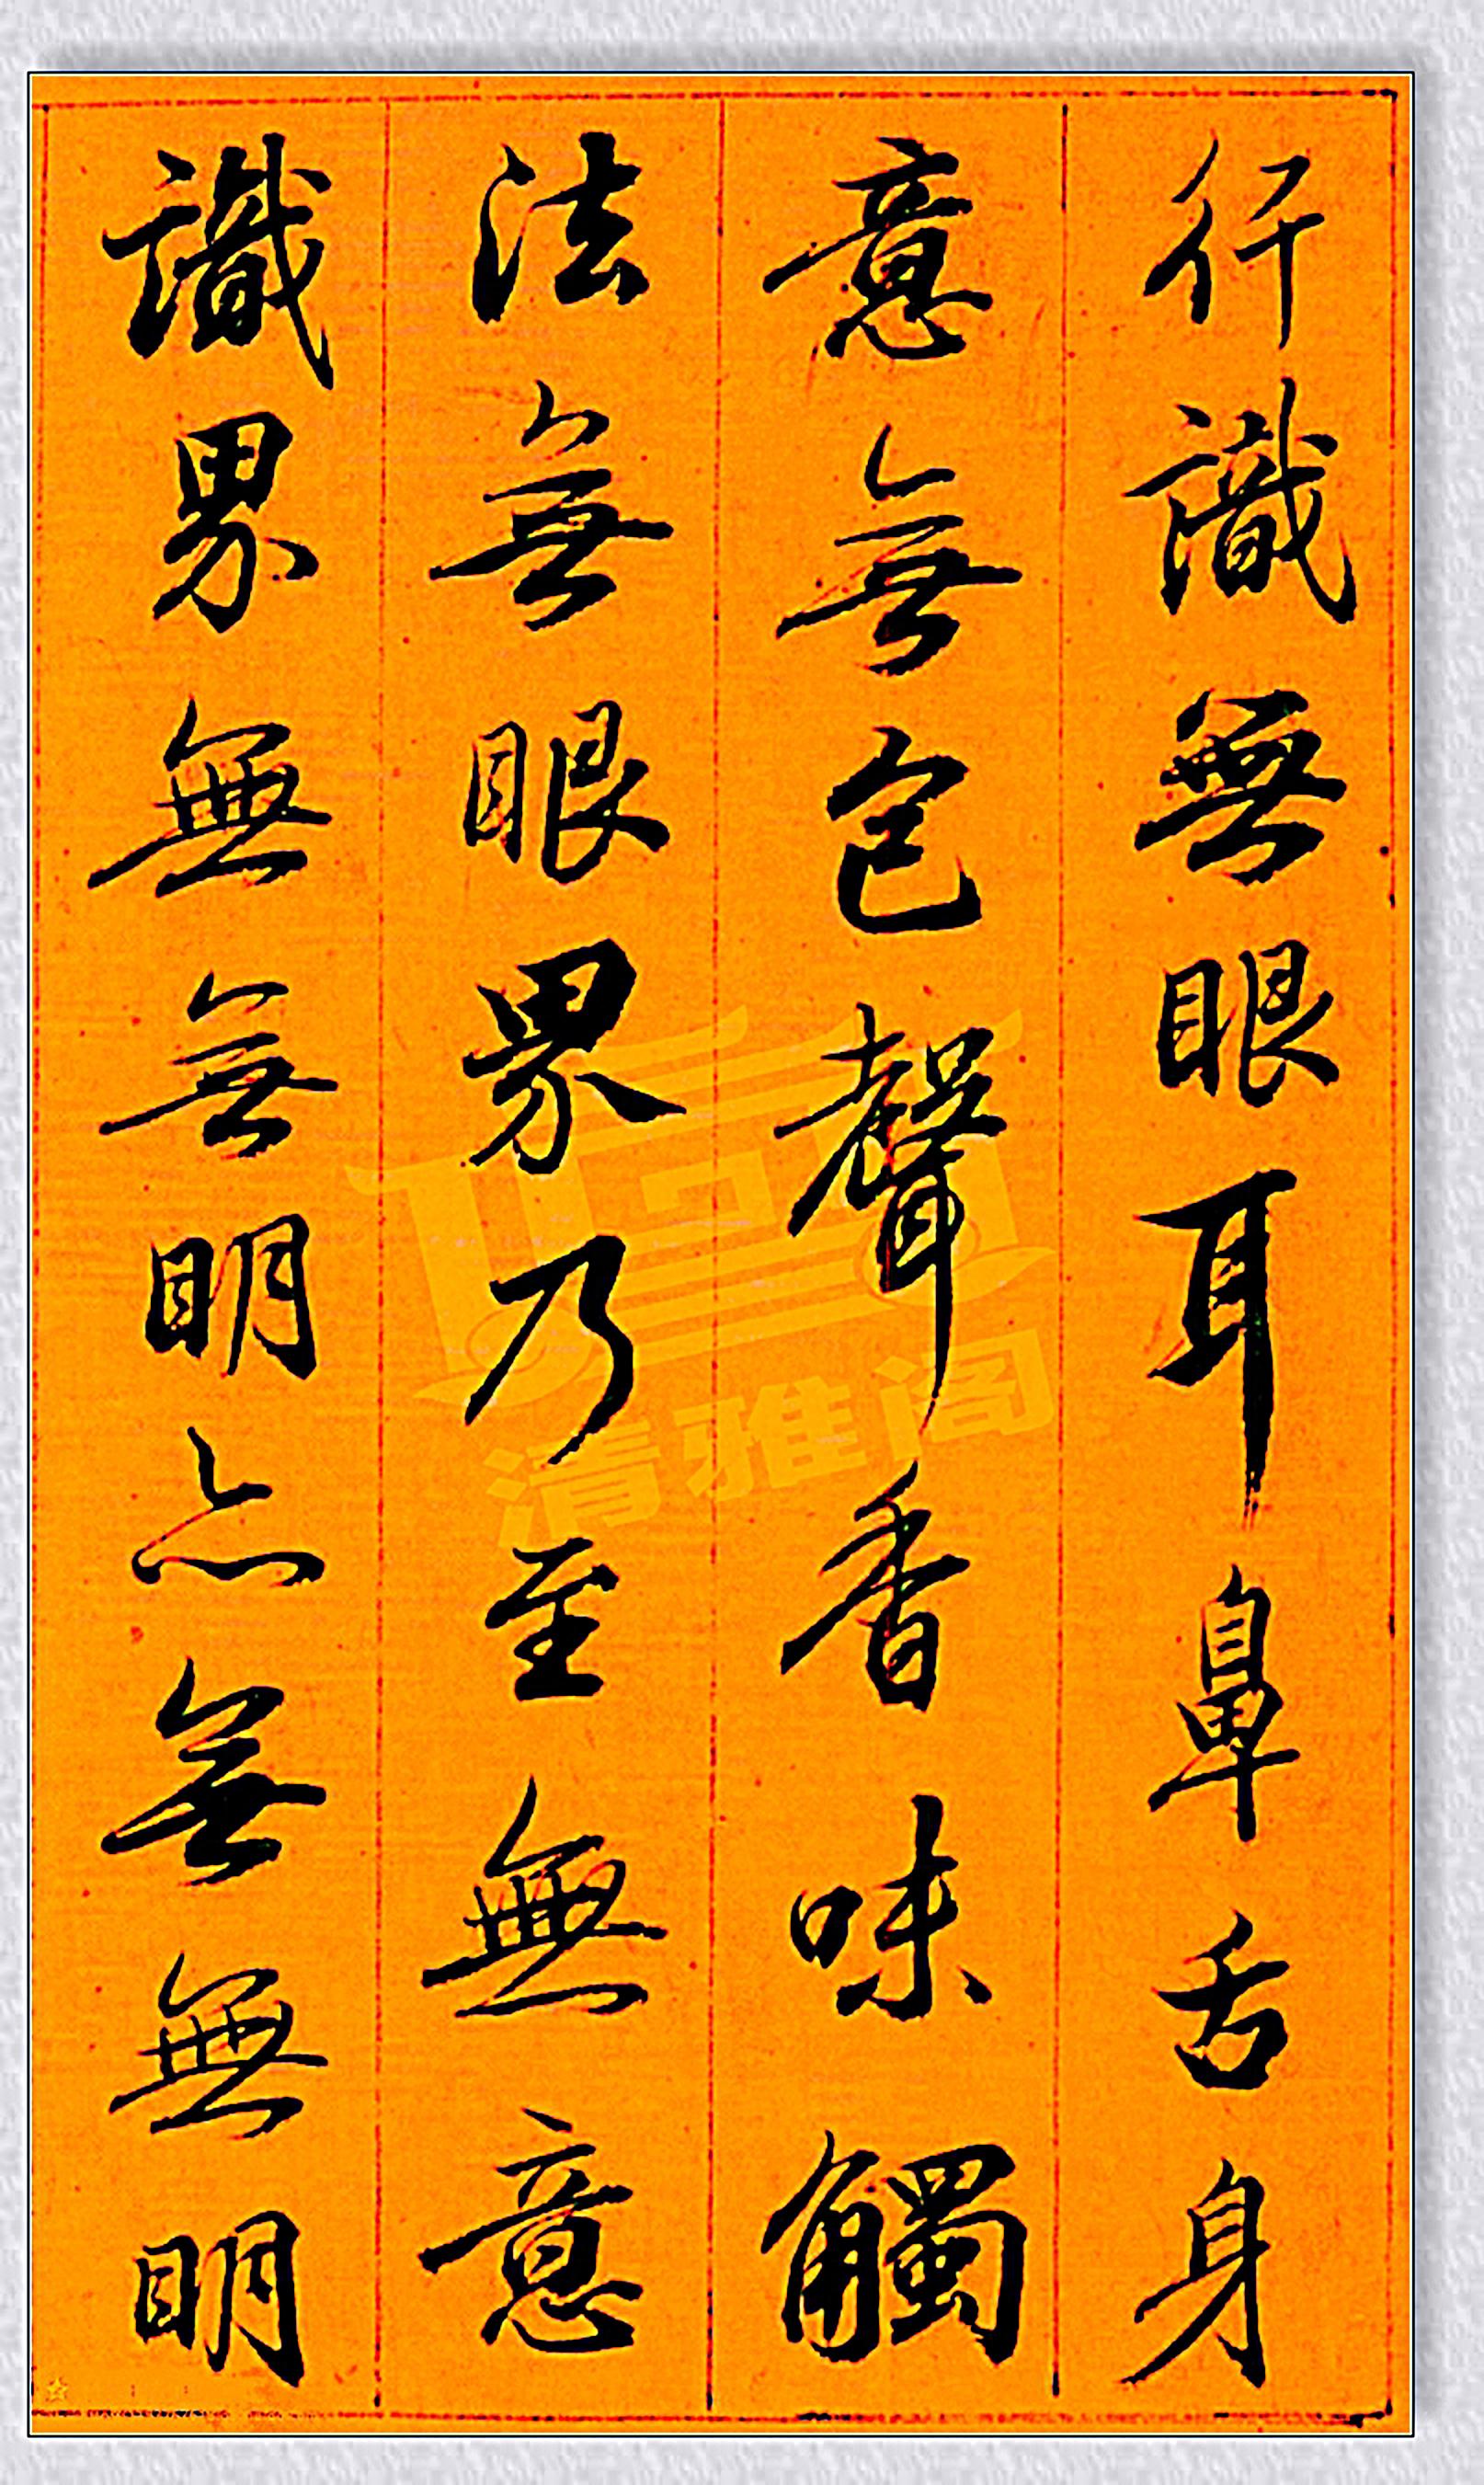 行識無眼耳鼻舌身
意無色聲香味觸
法無眼界乃至無意
識界無無明亦無無明
清雅阁